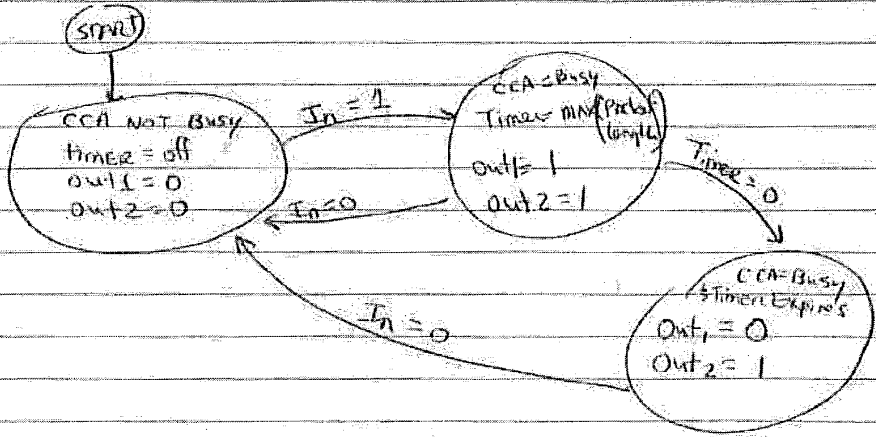 START
CCA NOT Busy
timER = off
out1 = 0
out2 = 0
In = 1
CCA = Busy
Timer = MAX (Packet
Length)
Out1 = 1
Out 2 = 1
In = 0
Timer = 0
CCA = Busy
& Timer Expires
Out1 = 0
Out2 = 1
In = 0